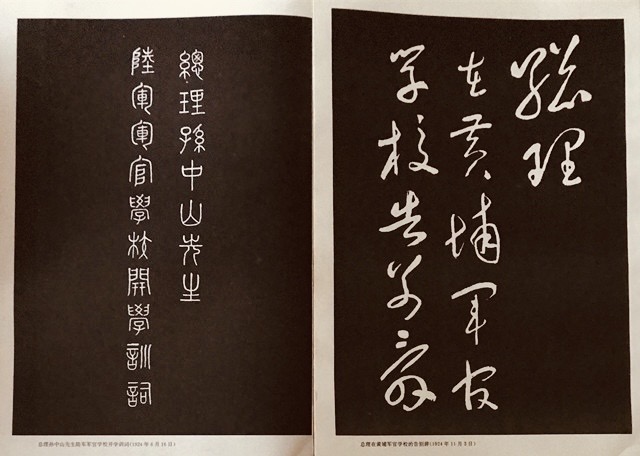 總理孫中山先生
陸軍軍官學校開學訓詞
总理孙中山先生陆军军官学校开学训词(1924年6月16日)
總理
在黄埔军官
学校告别辞
总理在黄埔军官学校的告别辞(1924年11月3日)